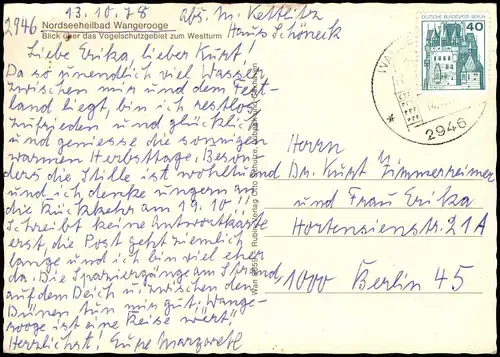 13.10.78
Abs. M. Kettlitz
2946 Nordseeheilbad Wangerooge
Haus Schöneck
Blick über das Vogelschutzgebiet zum Westturm
Liebe Erika, lieber Kurt!
Da so unendlich viel Wasser
zwischen mir und dem Fest-
land liegt, bin ich restlos
zufrieden und glücklich
und geniesse die sonnigen
warmen Herbsttage. Beson-
ders die Stille ist wohltuend
und ich denke ungern an
die Rückkehr am 19.10!!
Schreibt keine Antwortkarte
erst, die Post geht ziemlich
lange und ich bin viel eher
da. Die Spaziergänge am Strand
auf dem Deich u. zwischen den
Dünen tun mir gut. "Wange-
rooge ist eine Reise wert"
Herzlichst! Eure Margarete
DEUTSCHE BUNDESPOST BERLIN
40
2946
Herrn
Dr. Kurt Zimmerheimer
und Frau Erika
Hortensienstr. 21A
1000 Berlin 45